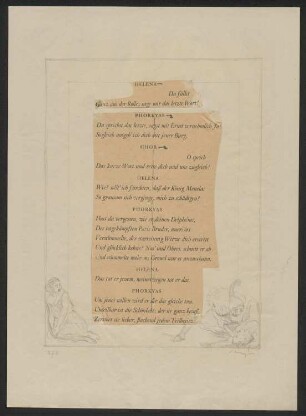 HELENA
Du fällst
Ganz aus der Rolle; sage mir das letzte Wort!
PHORKYAS
Du sprichst das letzte, sagst mit Ernst vernehmlich Ja!
Sogleich umgeb' ich dich mit jener Burg.
CHOR
O sprich
Das kurze Wort und rette dich und uns zugleich!
HELENA
Wie? sollt' ich fürchten, daß der König Menelas
So grausam sich verginge, mich zu schädigen?
PHORKYAS
Hast du vergessen, wie er deinen Deiphobus,
Des totgekämpften Paris Bruder, unerhört
Verstümmelte, der starrsinnig Witwe dich erstritt
Und glücklich kebste? Nas' und Ohren schnitt er ab
Und stümmelte mehr so; Greuel war es anzuschaun.
HELENA
Das tat er jenem, meinetwegen tat er das.
PHORKYAS
Um jenes willen wird er dir das gleiche tun.
Unteilbar ist die Schönheit; der sie ganz besaß,
Zerstört sie lieber, fluchend jedem Teilbesitz.